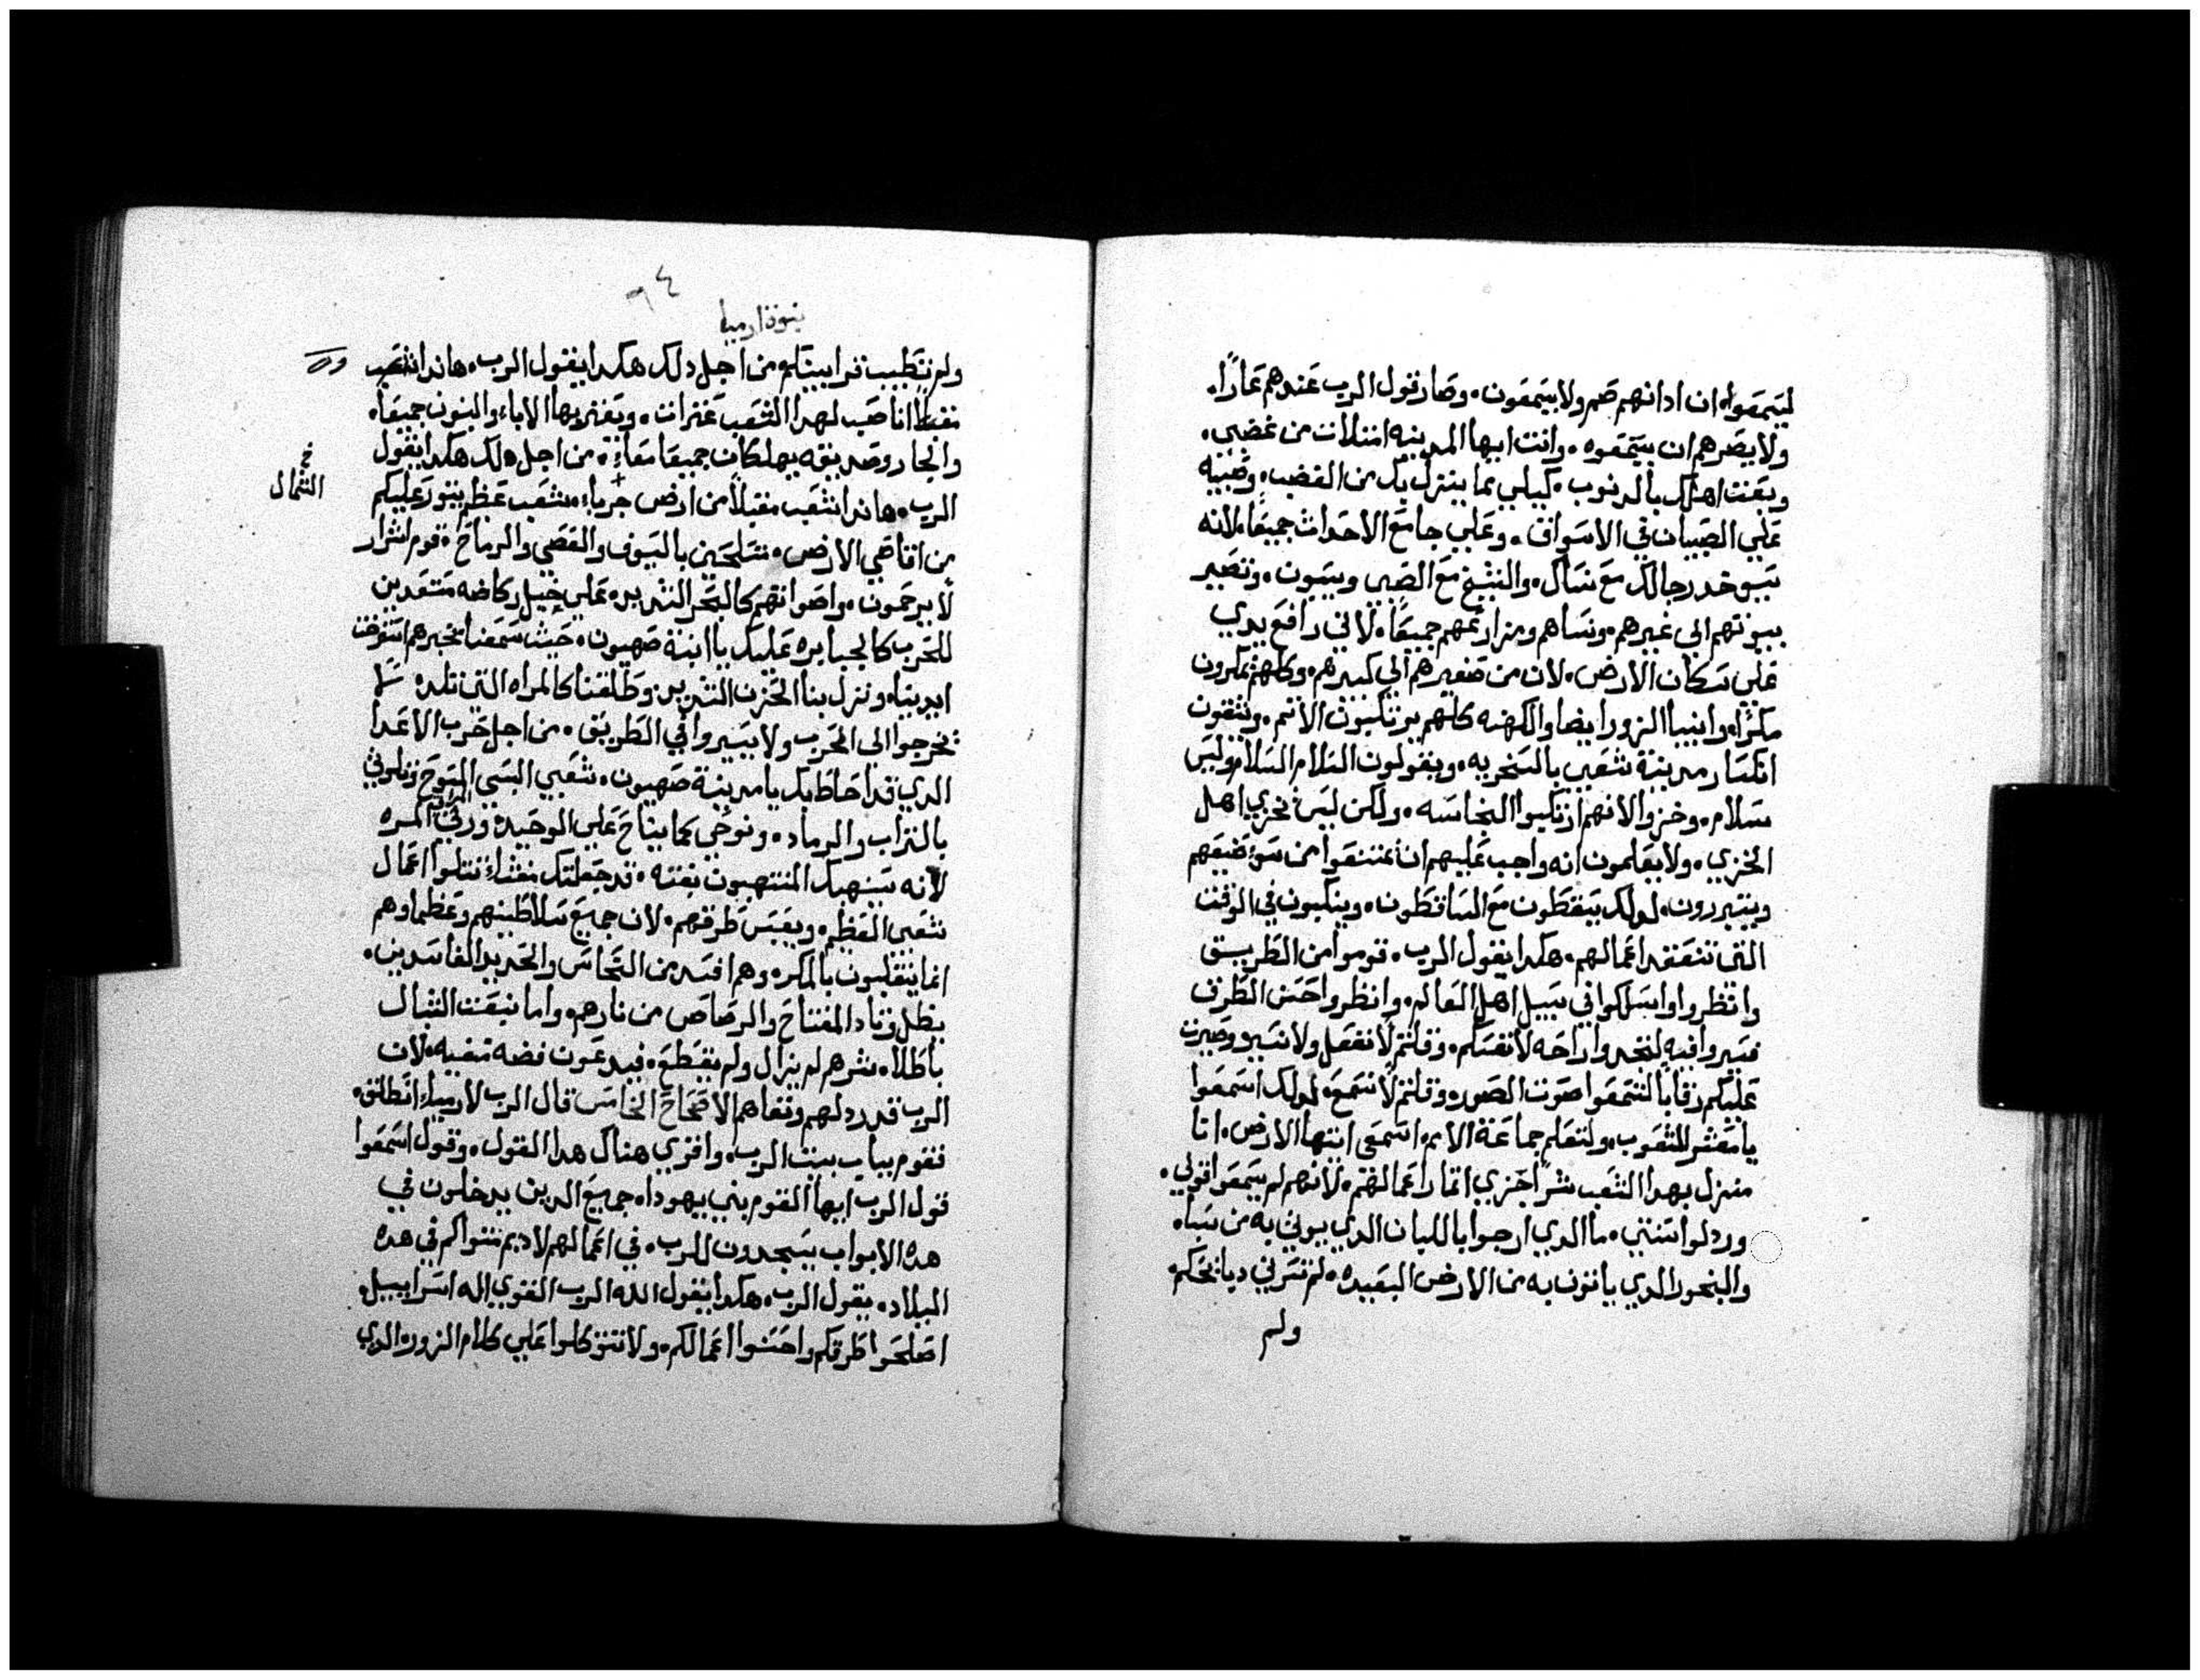 ليسمعوا، ان ادانهم صم ولا يسمعون. وصار قول الرب عندهم عارًا.
ولا يصرهم ان يسمعوه. وانت ايها المدينه امتلات من غضبي.
وبقت اهلك بالدنوب. كيلي بما ينزل بك من الغضب. وصبيه
علي الصبيان في الاسواق. وعلي جامع الاحداث جميعًا. لانه
سيوخد رجالك مع نساك. والشيخ مع الصبي ويسبون. وتصير
بيوتهم الي غيرهم. ونساهم ومزارعهم جميعًا. لاني رافع يدي
علي سكان الارض. لان من صغيرهم الي كبيرهم. وكلهم يمكرون
مكرًا. وانبيا الزور ايضا والكهنه كلهم يرتكبون الاثم. ويشفون
انكسار مدينة شعبي بالسخريه. ويقولون السلام السلام وليس
سلام. وخزوا لانهم ارتكبوا النجاسه. ولكن ليس خزي اهل
الخزي. ولا يعلمون انه واجب عليهم ان يمتنعوا من سوء صنيعهم
ويتبررون. لدلك يسقطون مع الساقطون. وينكبون في الوقت
التي تتفقد اعمالهم. هكدا يقول الرب. قوموا من الطريق
وانظروا واسلكوا في سبيل اهل العالم. وانظروا احسن الطرق
فسيروا فيه لتجدوا راحه لانفسكم. وقلتم لا نفعل ولا نسير وصيرت
عليكم رقابا لتسمعوا صوت الصور. وقلتم لا نسمع. لدلك اسمعوا
يا معشر الشعوب. ولتعلم جماعة الامم. اسمعي ايتها الارض. انا
منزل بهدا الشعب شرًا جزي اثمار اعمالهم. لانهم لم يسمعوا قولي.
وردلوا سنتي. ما الدي ارجوا باللبان الدي يوتي به من سبا.
والبخور الدي ياتون به من الارض البعيده. لم تسرني دبايحكم
ولم
٦٤
بنوة ارميا
ولم تطيب قرابينكم من اجل دلك هكدا يقول الرب. هاندا
انا صب لهدا الشعب عثرات. ويعثر بها الاباء والبنون جميعًا.
والجار وصديقه يهلكان جميعا معًا. من اجل دلك هكدا يقول
الرب. هاندا شعب مقبلاً من ارض جربيا. شعب عظم يثور عليكم
الشمال
من اقاصي الارض. متسلحين بالسيوف والقصي والرماح. قوم اشرار
لا يرحمون. واصواتهم كالبحر الشديد. علي خيل ركاضه مستعدين
للحرب كالجبابره عليك يا ابنة صهيون. حيث سمعنا بخبرهم استرخت
ايدينا. ونزل بنا الحزن الشديد. وطلقنا كالمراه التي تلد. لا
تخرجوا الي الحرب ولا يسيروا في الطريق. من اجل حرب الاعدا
الدي قد احاط بك يا مدينة صهيون. شعبي البسي المسوح وتلوثي
بالتراب والرماد. ونوحي كما يناح علي الوحيد. ورثي المره
لانه سينهبك المنتهبون بغته. قد جعلتك تبتلوا اعمال
شعبي العظيم. ويعبس طرقهم. لان جميع سلاطينهم وعظماوهم
انما يتقلبون بالمكر. وهم افسد من النحاس والحديد الفاسدين.
بطل زناد المفتاح والرصاص من نارهم. واما
باطلا. شرهم لم يزال ولم ينقطع. فيدعون فضه منفيه. لان
الرب قد ردلهم ونفاهم الاصحاح الخامس قال الرب لارميا انطلق.
فقوم بباب بيت الرب. واقري هناك هدا القول. وقول اسمعوا
قول الرب ايها القوم بني يهودا. جميع الدين يدخلون في
هده الابواب يسجدون للرب. في اعمالهم لاديم مثواكم في هده
البلاد. يقول الرب. هكدا يقول الله الرب القوي اله اسراييل.
اصلحوا طرقكم واحسنوا اعمالكم. ولا تتوكلوا علي كلام الزور. الدي